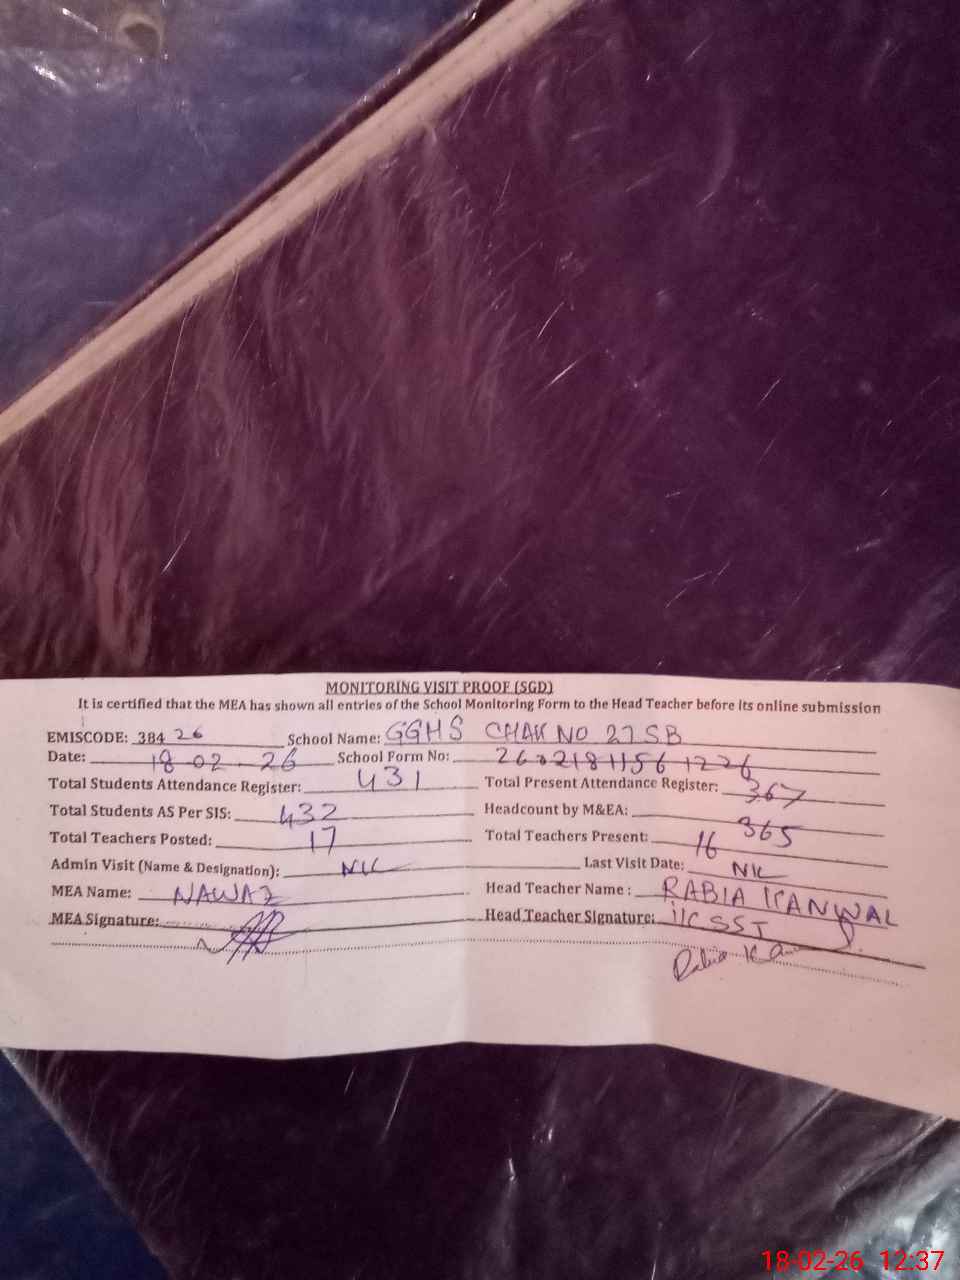 MONITORING VISIT PROOF (SGD)
It is certified that the MEA has shown all entries of the School Monitoring Form to the Head Teacher before its online submission
EMISCODE: 38426 School Name: GGHS CHAK NO 27 SB
Date: 18-02-26 School Form No:
Total Students Attendance Register: 431 Total Present Attendance Register: 367
Total Students AS Per SIS: 432 Headcount by M&EA: 365
Total Teachers Posted: 17 Total Teachers Present: 16
Admin Visit (Name & Designation): NIL Last Visit Date: NIL
MEA Name: NAWAZ Head Teacher Name : RABIA KANWAL
MEA Signature: Head Teacher Signature: SST
18-02-26 12:37